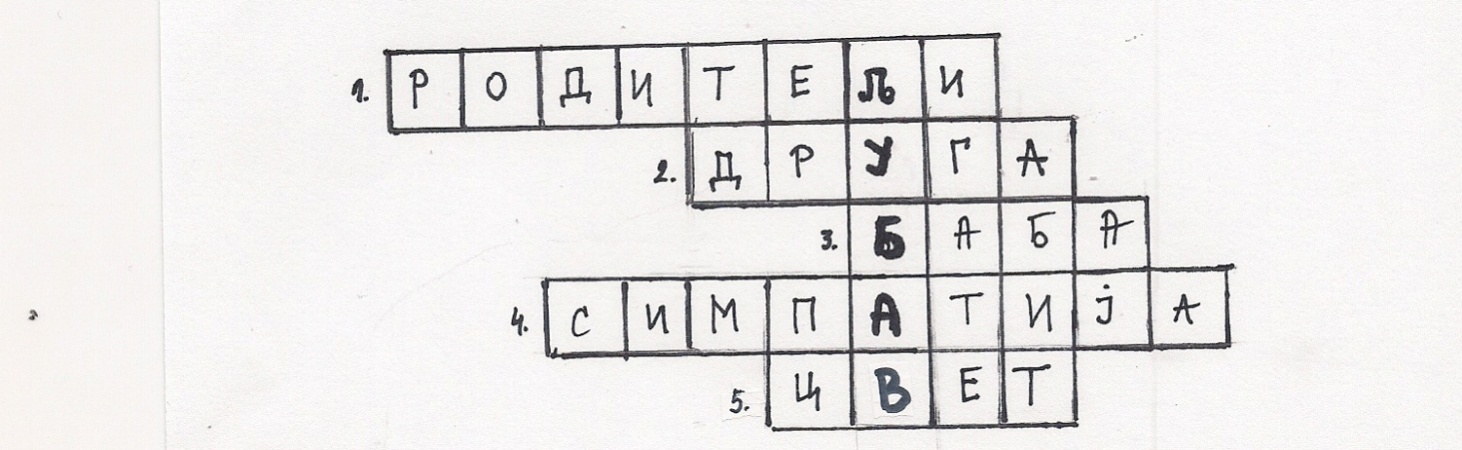 1. РОДИТЕЉИ
2. ДРУГА
3. БАБА
4. СИМПАТИЈА
5. ЦВЕТ